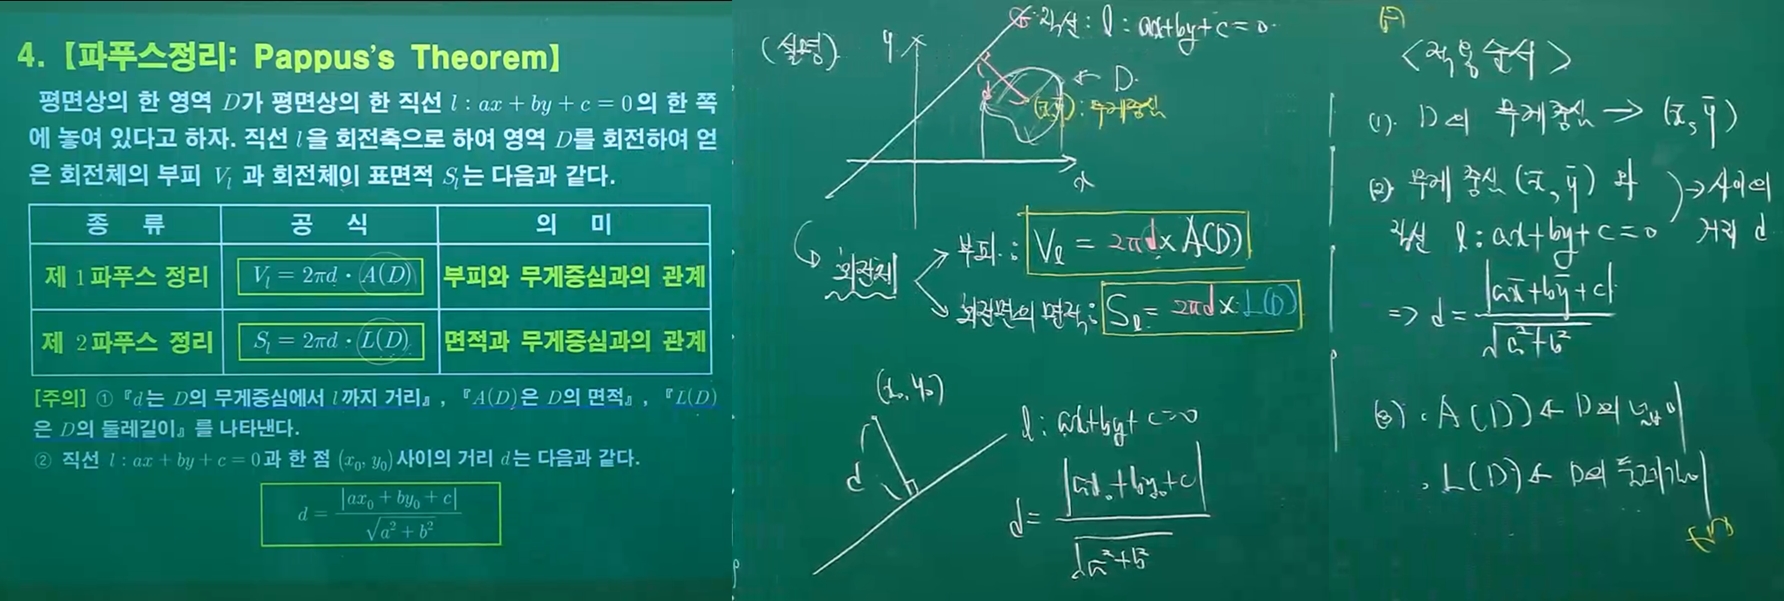 4. 【파푸스정리: Pappus's Theorem】
평면상의 한 영역 D가 평면상의 한 직선 l : ax + by + c = 0의 한 쪽
에 놓여 있다고 하자. 직선 l을 회전축으로 하여 영역 D를 회전하여 얻
은 회전체의 부피 Vₗ 과 회전체이 표면적 Sₗ는 다음과 같다.
종 류 공 식 의 미
제 1 파푸스 정리 Vₗ = 2πd · A(D) 부피와 무게중심과의 관계
제 2 파푸스 정리 Sₗ = 2πd · L(D) 면적과 무게중심과의 관계
[주의] ① 『d는 D의 무게중심에서 l까지 거리』, 『A(D)은 D의 면적』, 『L(D)
은 D의 둘레길이』를 나타낸다.
② 직선 l : ax + by + c = 0과 한 점 (x₀, y₀)사이의 거리 d는 다음과 같다.
d = |ax₀ + by₀ + c| / √(a² + b²)
(설명)
y
직선 : l : ax+by+c = 0
← D
d
(x̄, ȳ) : 무게중심
x
회전체
부피 : Vₗ = 2πd × A(D)
회전면의 면적 : Sₗ = 2πd × L(D)
(x₀, y₀)
d
l : ax+by+c=0
d = |ax₀+by₀+c| / √(a²+b²)
<적용순서>
(1). D의 무게중심 → (x̄, ȳ)
(2) 무게중심 (x̄, ȳ) 와
직선 l : ax+by+c=0
→ 사이의
거리 d
=> d = |ax̄+bȳ+c| / √(a²+b²)
(3) · A(D) ← D의 넓이
· L(D) ← D의 둘레길이